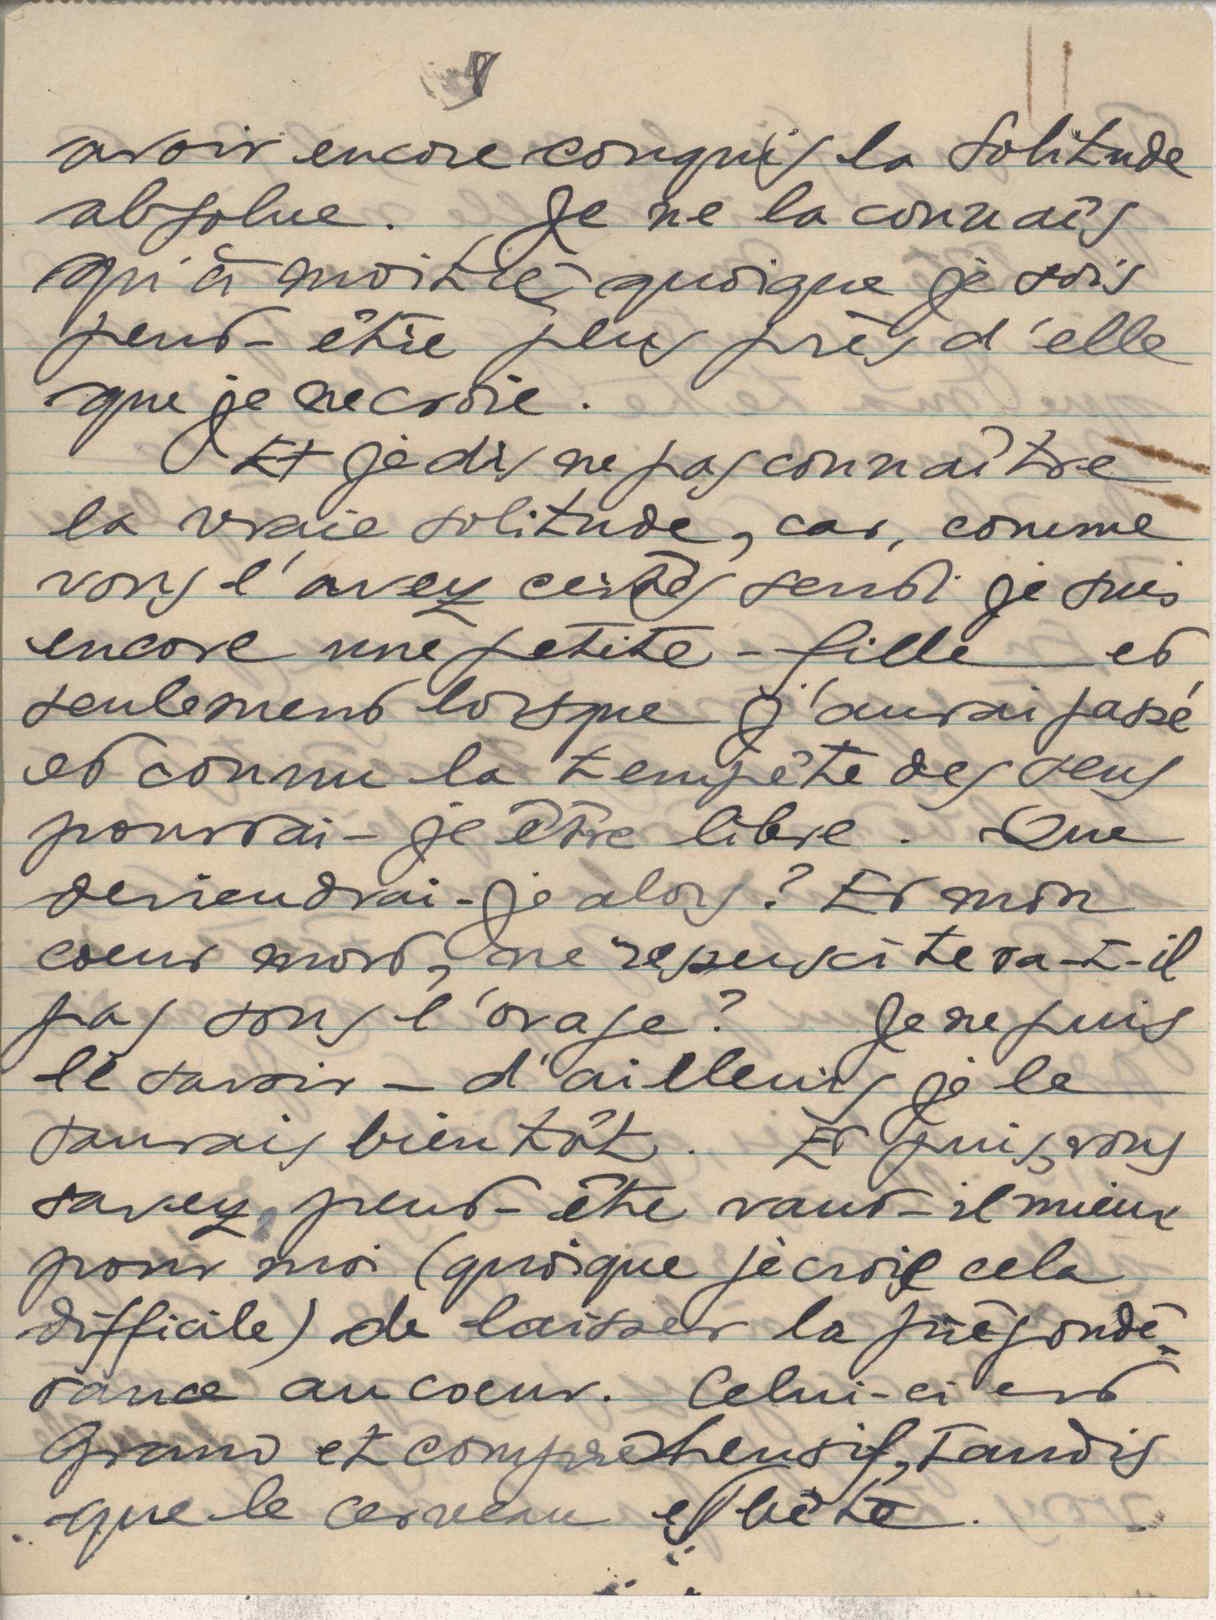 avoir encore conquis la solitude
absolue. Je ne la connais
qu'à moitié, quoique je sois
peut-être plus près d'elle
que je ne croie.
Et je dis ne pas connaître
la vraie solitude, car, comme
vous l'avez certes senti je suis
encore une petite-fille et
seulement lorsque j'aurai passé
et connu la tempête des sens
pourrai-je être libre. Que
deviendrai-je alors? Et mon
coeur mort, ne ressuscitera-t-il
pas sous l'orage? Je ne puis
le savoir - d'ailleurs je le
saurais bientôt. Et puis, vous
savez, peut-être vaut-il mieux
pour moi (quoique je croie cela
difficile) de laisser la prépondé-
rance au coeur. Celui-ci est
Grand et compréhensif, tandis
que le cerveau est bête.